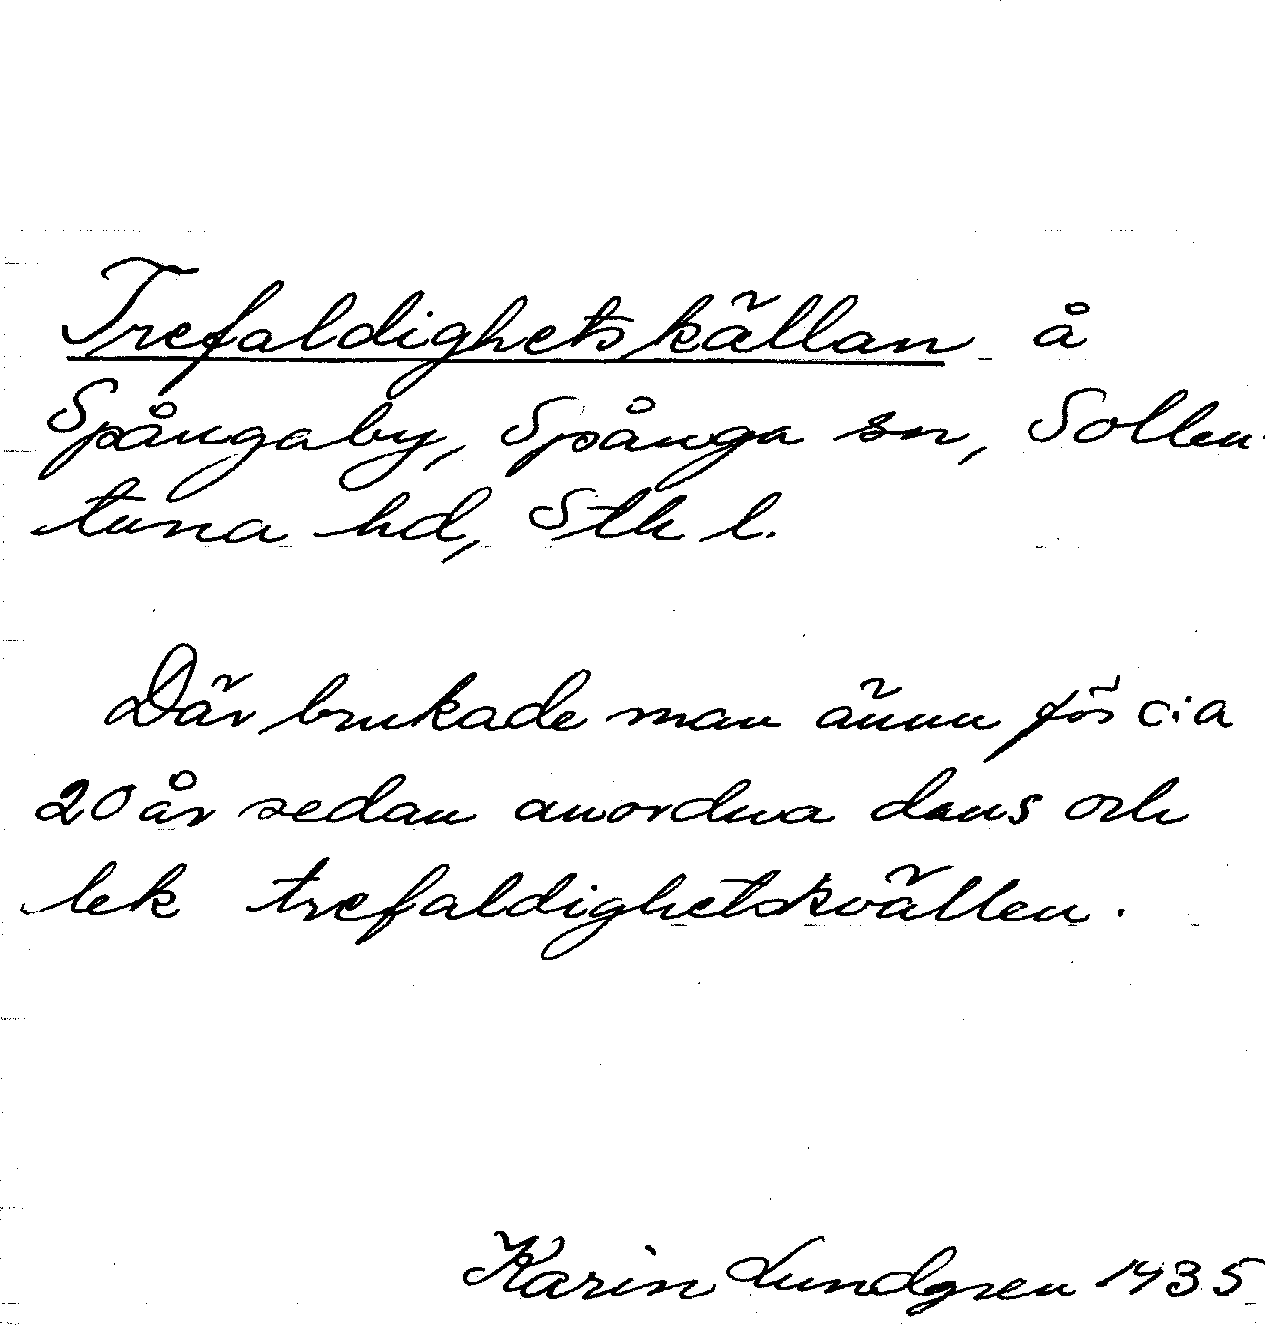 Trefaldighetskällan å
Spångaby, Spånga sn, Sollen-
tuna hd, Sthl l.
Där brukade man ännu för c:a
20 år sedan anordna dans och
lek trefaldighetskvällen.
Karin Lundgren 1935